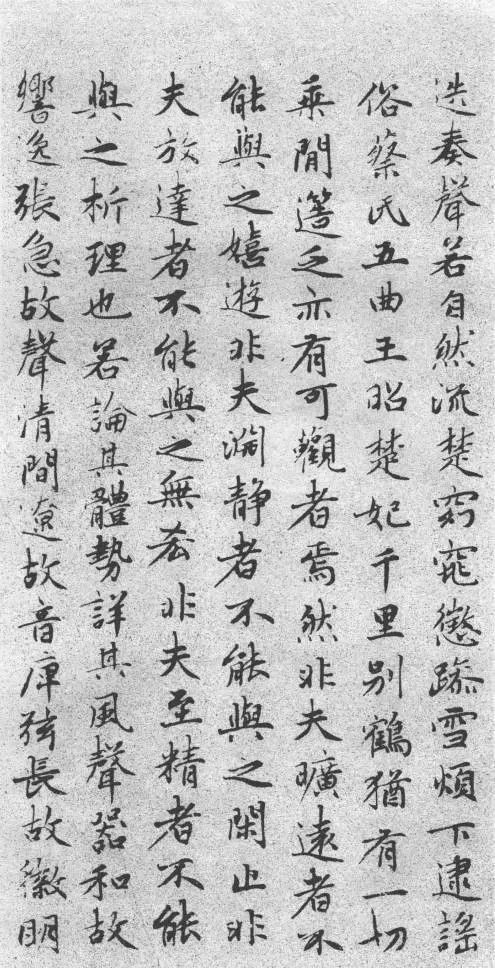 迭奏聲若自然流楚窈窕懲躁雪煩下逮謠
俗蔡氏五曲王昭楚妃千里別鶴猶有一切
乘閒簉乏亦有可觀者焉然非夫曠遠者不
能與之嬉遊非夫淵静者不能與之閑止非
夫放達者不能與之無吝非夫至精者不能
與之析理也若論其體勢詳其風聲器和故
響逸張急故聲清間遼故音庳弦長故徽明